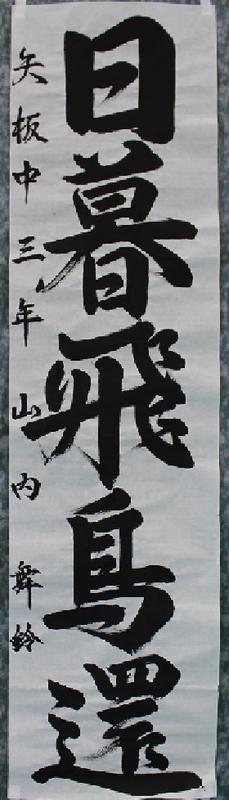 日暮飛鳥還
矢板中三年山内舞鈴